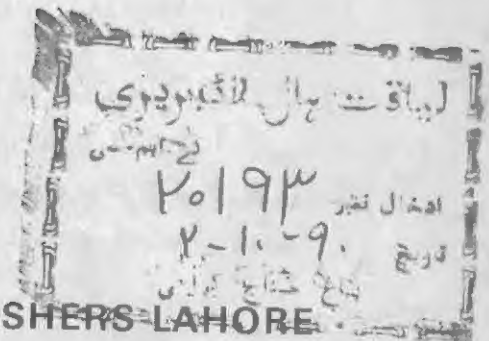 لیاقت ہال لائبریری
ادخال نمبر ۲۰۱۹۳
تاریخ ۲-۱۰-۹۰
باغ جناح کراچی
SHERS LAHORE